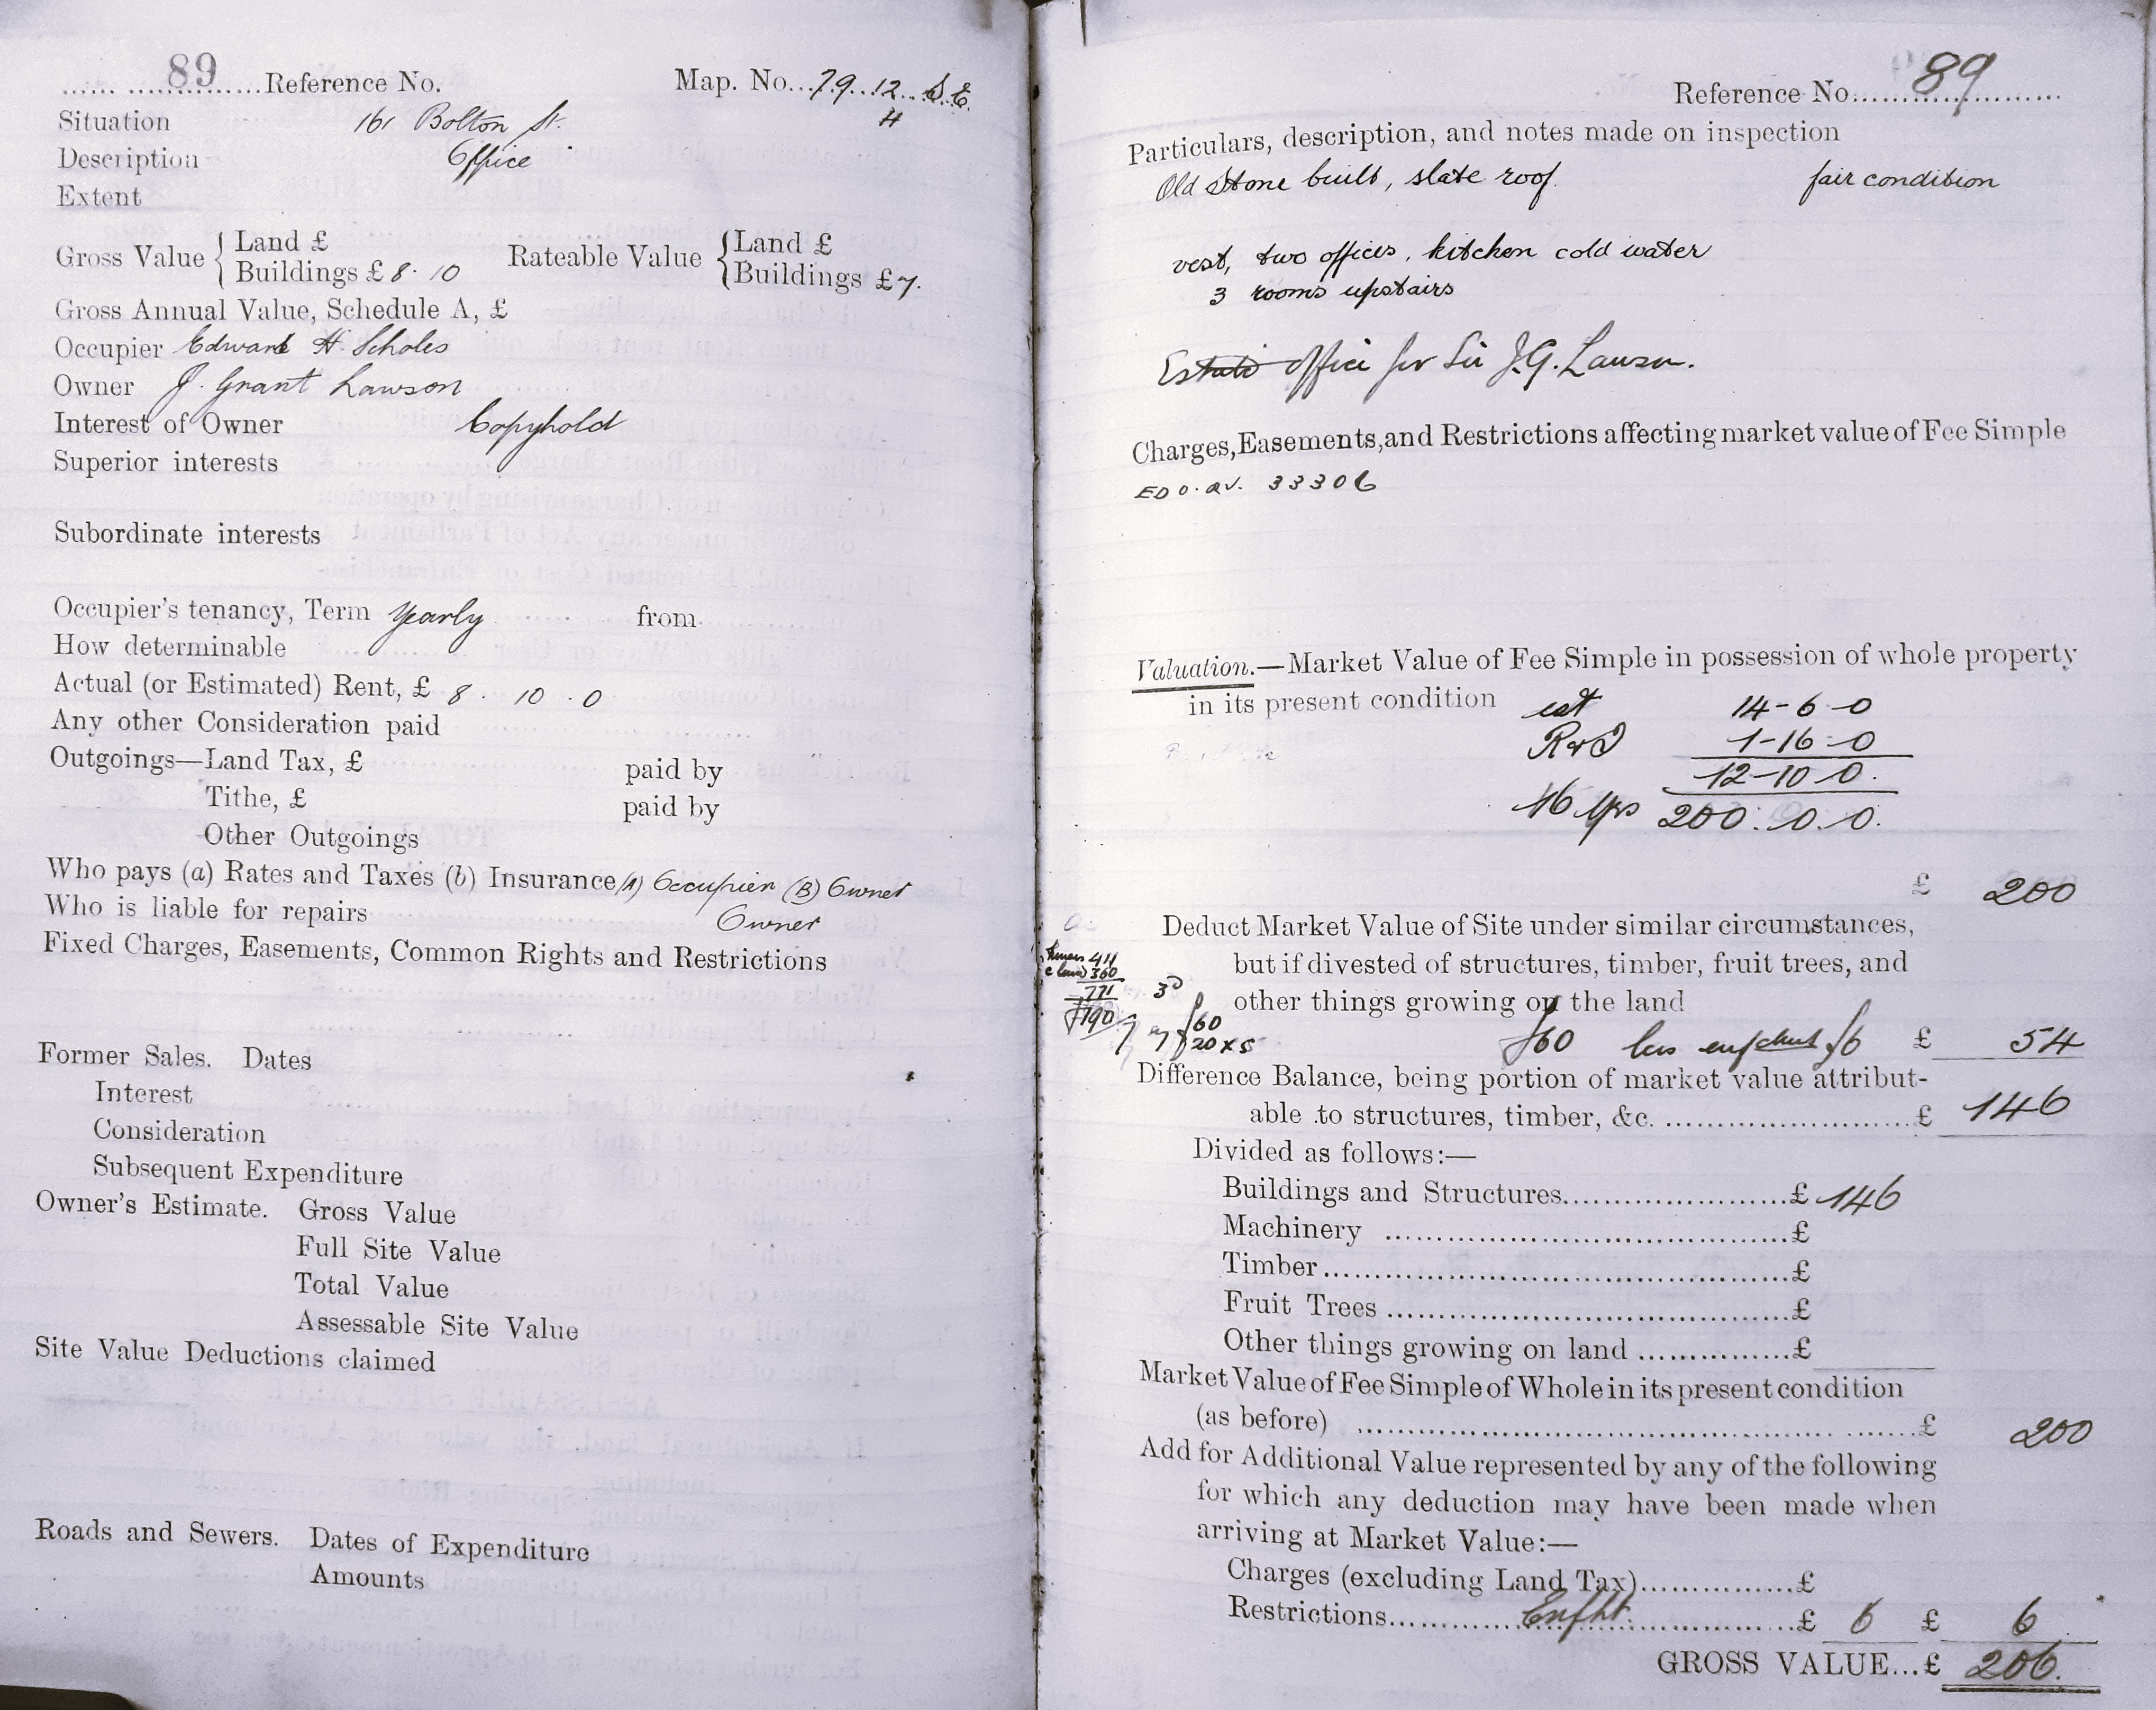 89 Reference No. Map. No... 79.12. S.E.
Situation 161 Bolton St. H
Description Office
Extent
Gross Value { Land £
Buildings £ 8. 10 Rateable Value { Land £
Buildings £7.
Gross Annual Value, Schedule A, £
Occupier Edward H. Scholes
Owner J. Grant Lawson
Interest of Owner Copyhold
Superior interests
Subordinate interests
Occupier's tenancy, Term Yearly from
How determinable
Actual (or Estimated) Rent, £ 8. 10. 0
Any other Consideration paid
Outgoings—Land Tax, £ paid by
Tithe, £ paid by
Other Outgoings
Who pays (a) Rates and Taxes (b) Insurance (A) Occupier (B) Owner
Who is liable for repairs Owner
Fixed Charges, Easements, Common Rights and Restrictions
Former Sales. Dates
Interest
Consideration
Subsequent Expenditure
Owner's Estimate. Gross Value
Full Site Value
Total Value
Assessable Site Value
Site Value Deductions claimed
Roads and Sewers. Dates of Expenditure
Amounts
Reference No. 89
Particulars, description, and notes made on inspection
Old Stone built, slate roof. fair condition
vest, two offices, kitchen cold water
3 rooms upstairs
Estate office for Sir J.G. Lawson.
Charges, Easements, and Restrictions affecting market value of Fee Simple
33306
Valuation.—Market Value of Fee Simple in possession of whole property
in its present condition est 14-6-0
1-16-0
12-10-0.
16 yrs 200.0.0.
£ 200
Deduct Market Value of Site under similar circumstances,
but if divested of structures, timber, fruit trees, and
other things growing on the land
411
360
771
£190
£60
£20 x 5
£60 less £6 £ 54
Difference Balance, being portion of market value attribut-
able to structures, timber, &c. £ 146
Divided as follows:—
Buildings and Structures £ 146
Machinery £
Timber £
Fruit Trees £
Other things growing on land £
Market Value of Fee Simple of Whole in its present condition
(as before) £ 200
Add for Additional Value represented by any of the following
for which any deduction may have been made when
arriving at Market Value:—
Charges (excluding Land Tax) £
Restrictions Enfht. £ 6 £ 6
GROSS VALUE...£ 206.